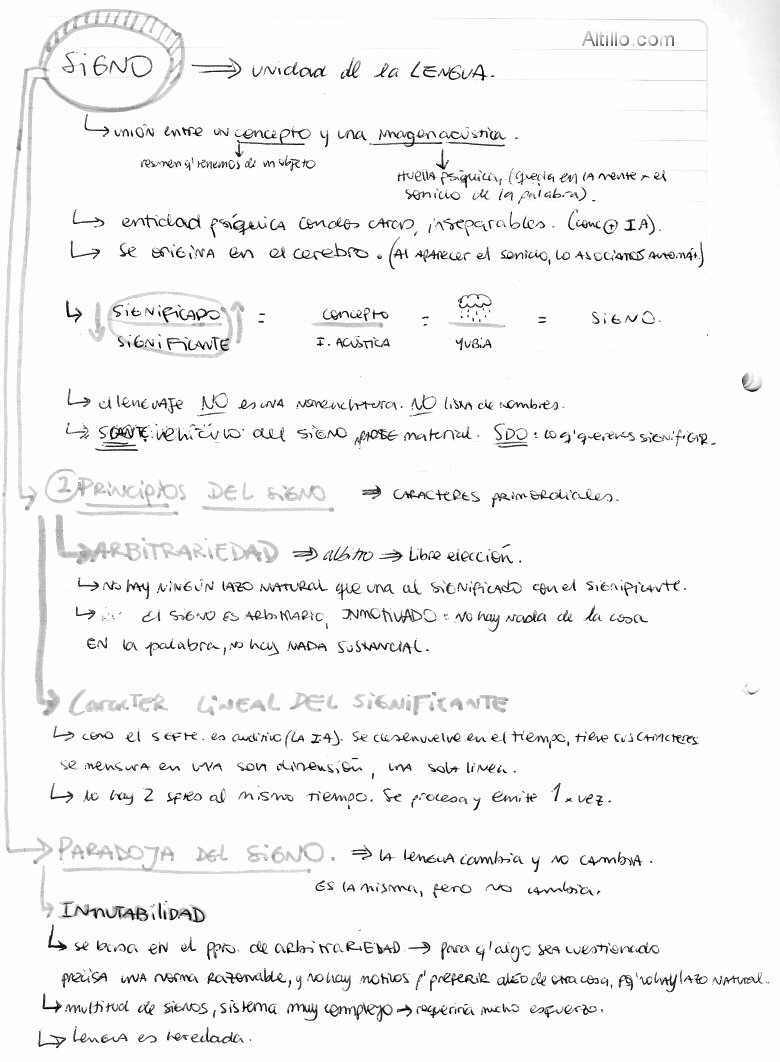 Altillo.com
SIGNO ⇒ unidad de la LENGUA.
↳ unión entre un concepto y una imagen acústica.
resumen q' tenemos de un objeto
Huella psíquica, (queda en la mente el
sonido de la palabra).
↳ entidad psíquica con dos caras, inseparables. (conc ⊕ IA).
↳ se origina en el cerebro. (Al aparecer el sonido, lo asociamos automát)
↳ ↓ SIGNIFICADO ↑ = concepto = = SIGNO.
SIGNIFICANTE I. ACÚSTICA YUBIA
↳ el lenguaje NO es una nomenclatura. NO lista de nombres.
↳ SCANTE: vehículo del signo, material. SDO: lo q' querés significar.
② PRINCIPIOS DEL SIGNO ⇒ caracteres primordiales.
↳ ARBITRARIEDAD ⇒ albitro ⇒ Libre elección.
↳ NO HAY NINGÚN LAZO NATURAL que una al significado con el significante.
↳ el SIGNO ES ARBITRARIO, INMOTIVADO: no hay nada de la cosa
EN la palabra, no hay NADA SUSTANCIAL.
→ CARÁCTER LINEAL DEL SIGNIFICANTE
↳ como el SGFTE. es auditivo (LA IA). Se desenvuelve en el tiempo, tiene sus caracteres
se mensura en una sola dimensión, una sola línea.
↳ No hay 2 sftes al mismo tiempo. Se procesa y emite 1 x vez.
→ PARADOJA DEL SIGNO. ⇒ la lengua cambia y no cambia.
ES la misma, pero no cambia.
→ INMUTABILIDAD
↳ se basa en el ppio. de arbitrariedad → para q' algo sea cuestionado
precisa una norma razonable, y no hay motivos p' preferir algo de otra cosa, pq' no hay lazo natural.
↳ multitud de signos, sistema muy complejo → requeriría mucho esfuerzo.
↳ Lengua es heredada.